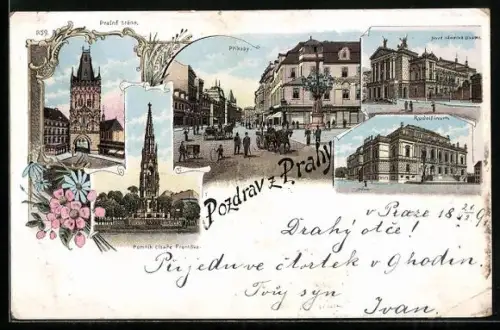 Prašná brána.
Příkopy
Nové německé divadlo.
Rudolfinum.
Pomník císaře Františka.
Pozdrav z Prahy
v Praze 18 21/12 9
Drahý otče!
Přijedu ve čtvrtek v 9 hodin.
Tvůj syn
Ivan.